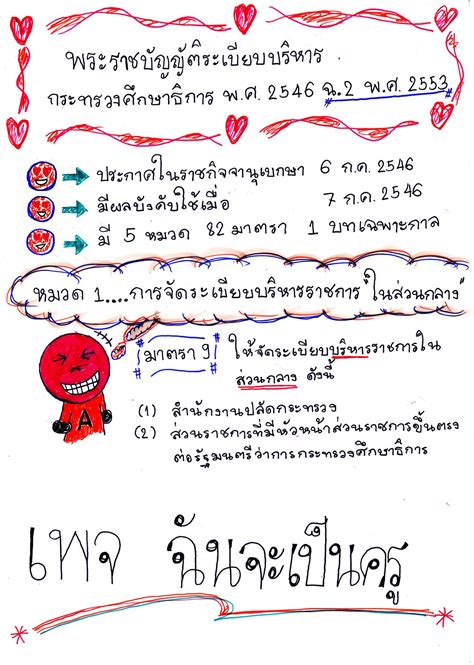 พระราชบัญญัติระเบียบบริหาร
กระทรวงศึกษาธิการ พ.ศ. 2546 ฉ.2 พ.ศ. 2553
ประกาศในราชกิจจานุเบกษา 6 ก.ค. 2546
มีผลบังคับใช้เมื่อ 7 ก.ค. 2546
มี 5 หมวด 82 มาตรา 1 บทเฉพาะกาล
หมวด 1....การจัดระเบียบบริหารราชการ "ในส่วนกลาง"
มาตรา 9 ให้จัดระเบียบบริหารราชการใน
ส่วนกลาง ดังนี้
(1) สำนักงานปลัดกระทรวง
(2) ส่วนราชการที่มีหัวหน้าส่วนราชการขึ้นตรง
ต่อรัฐมนตรีว่าการกระทรวงศึกษาธิการ
A
เพจ ฉันจะเป็นครู